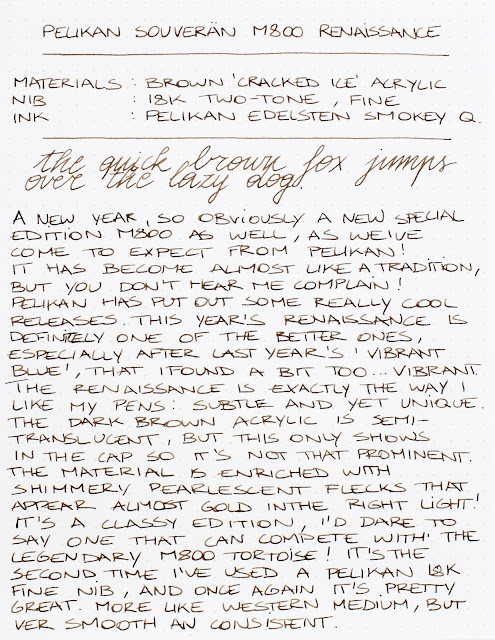 PELIKAN SOUVERÄN M800 RENAISSANCE
MATERIALS : BROWN 'CRACKED ICE' ACRYLIC
NIB : 18K TWO-TONE, FINE
INK : PELIKAN EDELSTEIN SMOKEY Q.
the quick brown fox jumps
over the lazy dog.
A NEW YEAR, SO OBVIOUSLY A NEW SPECIAL
EDITION M800 AS WELL, AS WE'VE
COME TO EXPECT FROM PELIKAN!
IT HAS BECOME ALMOST LIKE A TRADITION,
BUT YOU DON'T HEAR ME COMPLAIN!
PELIKAN HAS PUT OUT SOME REALLY COOL
RELEASES. THIS YEAR'S RENAISSANCE IS
DEFINITELY ONE OF THE BETTER ONES,
ESPECIALLY AFTER LAST YEAR'S 'VIBRANT
BLUE', THAT I FOUND A BIT TOO... VIBRANT.
THE RENAISSANCE IS EXACTLY THE WAY I
LIKE MY PENS: SUBTLE AND YET UNIQUE.
THE DARK BROWN ACRYLIC IS SEMI-
TRANSLUCENT, BUT THIS ONLY SHOWS
IN THE CAP SO IT'S NOT THAT PROMINENT.
THE MATERIAL IS ENRICHED WITH
SHIMMERY PEARLESCENT FLECKS THAT
APPEAR ALMOST GOLD IN THE RIGHT LIGHT!
IT'S A CLASSY EDITION, I'D DARE TO
SAY ONE THAT CAN COMPETE WITH THE
LEGENDARY M800 TORTOISE! IT'S THE
SECOND TIME I'VE USED A PELIKAN 18K
FINE NIB, AND ONCE AGAIN IT'S PRETTY
GREAT. MORE LIKE WESTERN MEDIUM, BUT
VER SMOOTH AN CONSISTENT.